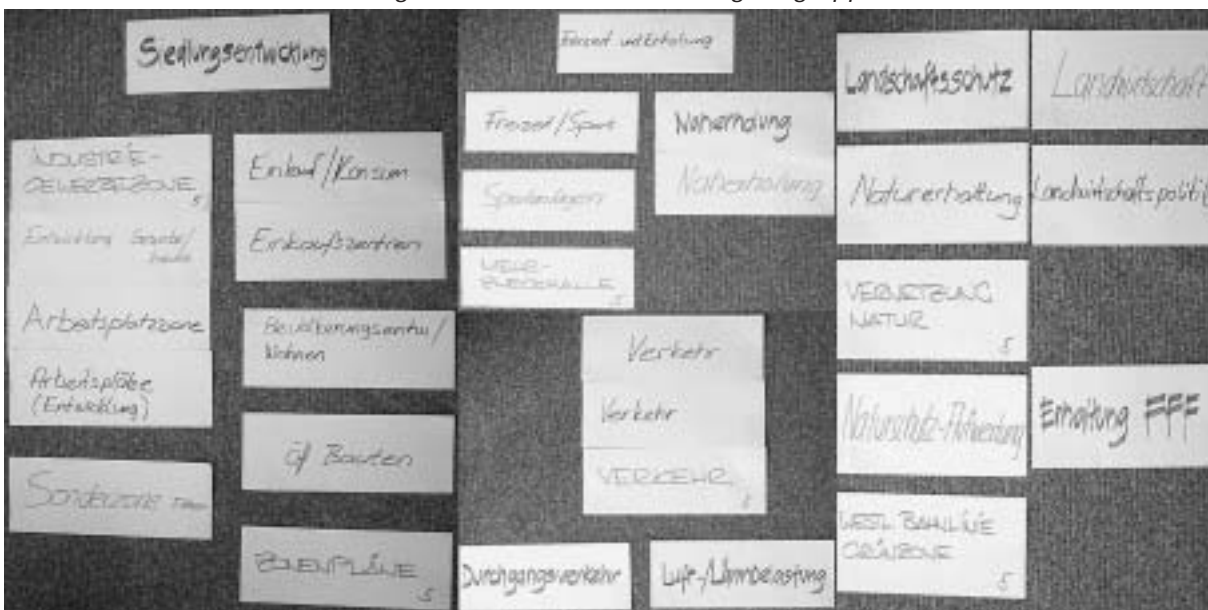 Siedlungsentwicklung
INDUSTRIE-
GEWERBEZONE
5
Entwicklung Gewerbe/
Arbeitsplatzzone
Arbeitsplätze
(Entwicklung)
Sonderzone
Einkauf/Konsum
Einkaufszentren
Bevölkerungsentw/
Wohnen
ö/ Bauten
ZONENPLÄNE
5
Freizeit und Erholung
Freizeit/Sport
Sportanlagen
MEHR-
ZWECKHALLE
5
Naherholung
Naherholung
Verkehr
Verkehr
VERKEHR
5
Durchgangsverkehr
Luft-/Lärmbelastung
Landschaftsschutz
Naturerhaltung
VERNETZUNG
NATUR
5
Naturschutz-Aufwertung
WESTL BAHNLINIE
GRÜNZONE
5
Landwirtschaft
Landwirtschaftspolitik
Erhaltung FFF